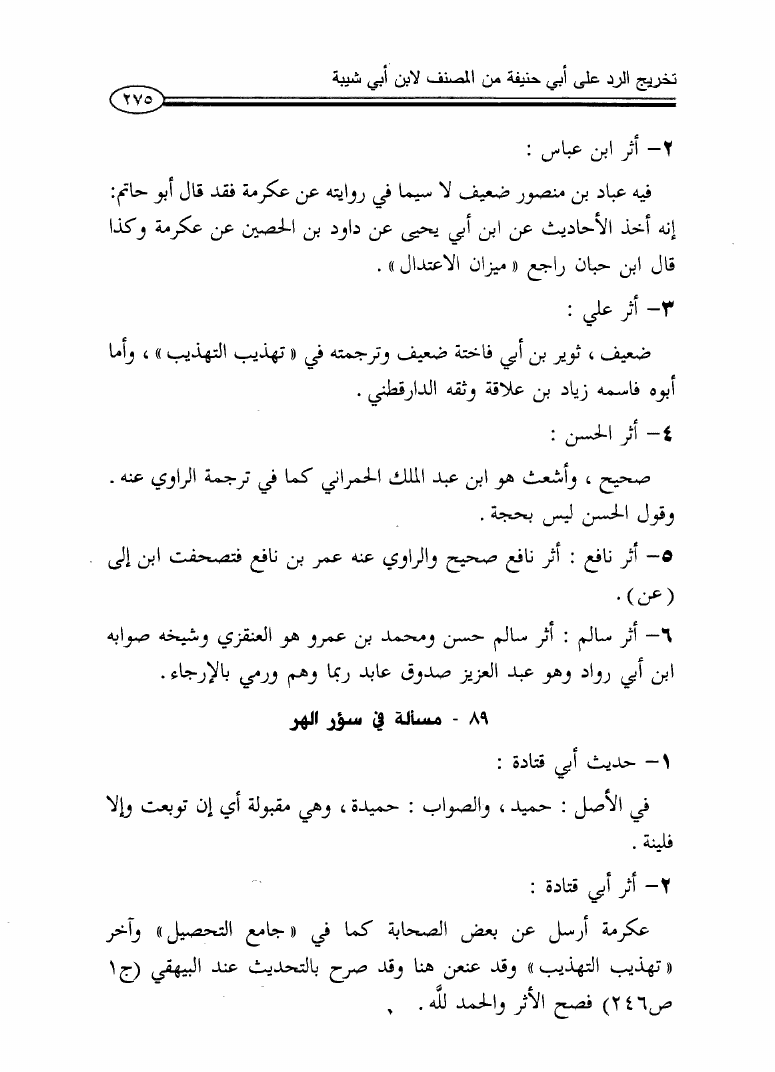 تخريج الرد على أبي حنيفة من المصنف لابن أبي شيبة
٢٧٥
٢- أثر ابن عباس :
فيه عباد بن منصور ضعيف لا سيما في روايته عن عكرمة فقد قال أبو حاتم:
إنه أخذ الأحاديث عن ابن أبي يحيى عن داود بن الحصين عن عكرمة وكذا
قال ابن حبان راجع « ميزان الاعتدال » .
٣- أثر علي :
ضعيف ، ثوير بن أبي فاختة ضعيف وترجمته في « تهذيب التهذيب » ، وأما
أبوه فاسمه زياد بن علاقة وثقه الدارقطني .
٤- أثر الحسن :
صحيح ، وأشعث هو ابن عبد الملك الحمراني كما في ترجمة الراوي عنه .
وقول الحسن ليس بحجة .
٥- أثر نافع : أثر نافع صحيح والراوي عنه عمر بن نافع فتصحفت ابن إلى
(عن) .
٦- أثر سالم : أثر سالم حسن ومحمد بن عمرو هو العنقزي وشيخه صوابه
ابن أبي رواد وهو عبد العزيز صدوق عابد ربما وهم ورمي بالإرجاء .
٨٩ - مسألة في سؤر الهر
١- حديث أبي قتادة :
في الأصل : حميد ، والصواب : حميدة ، وهي مقبولة أي إن توبعت وإلا
فلينة .
٢- أثر أبي قتادة :
عكرمة أرسل عن بعض الصحابة كما في « جامع التحصيل » وآخر
« تهذيب التهذيب » وقد عنعن هنا وقد صرح بالتحديث عند البيهقي (ج١
ص٢٤٦) فصح الأثر والحمد للَّه .